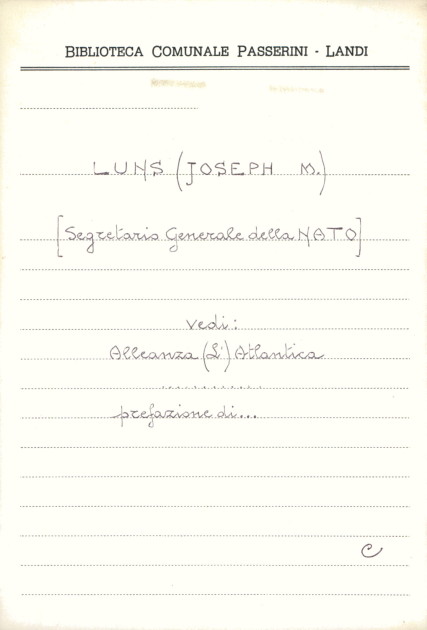 BIBLIOTECA COMUNALE PASSERINI - LANDI
LUNS (JOSEPH M.)
[Segretario Generale della NATO]
vedi:
Alleanza (L') Atlantica
............
prefazione di...
C